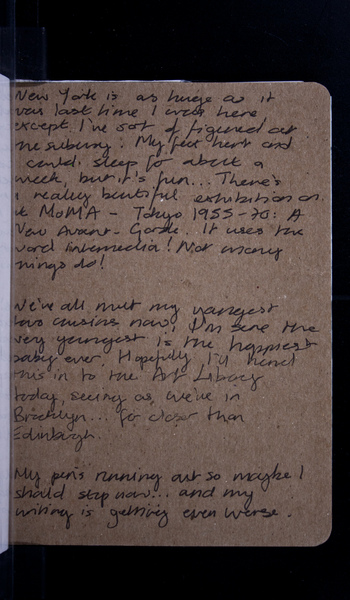 New York is as huge as it
was last time I was here,
except I've sort of figured out
the subway. My feet hurt and
I could sleep for about a
week, but it's fun... There's
a really beautiful exhibition on
at MoMA - Tokyo 1955-70: A
New Avant-Garde. It uses the
word intermedia! Not many
things do!
We've all met my youngest
two cousins now, I'm sure the
very youngest is the happiest
baby ever. Hopefully I'll hand
this in to the Art Library
today, seeing as we're in
Brooklyn... far closer than
Edinburgh.
My pen's running out so maybe I
should stop now... and my
writing is getting even worse.